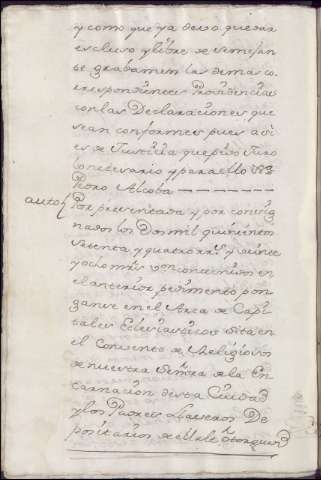 y como que ya devo quedar
escluso y libre de semejan
te gravamen las demas co
rrespondientes Providencias
con las Declaraciones que
sean conformes pues asi
es de Justicia que pido Juro
lo necesario y para ello &c
Pedro Alcoba
auto Por presentada y por consig
nados los Dosmil quinientos
setenta y quatro rr.s y veinte
y ocho mrs von contenidos en
el anterior pedimento pon
ganse en el Arca de Capi
tales Eclesiasticos sita en
el Convento de Religiosos
de nuestra Señora de la En
carnacion desta Ciudad
y los Padres Llaveros De
positarios de ella le otorguen